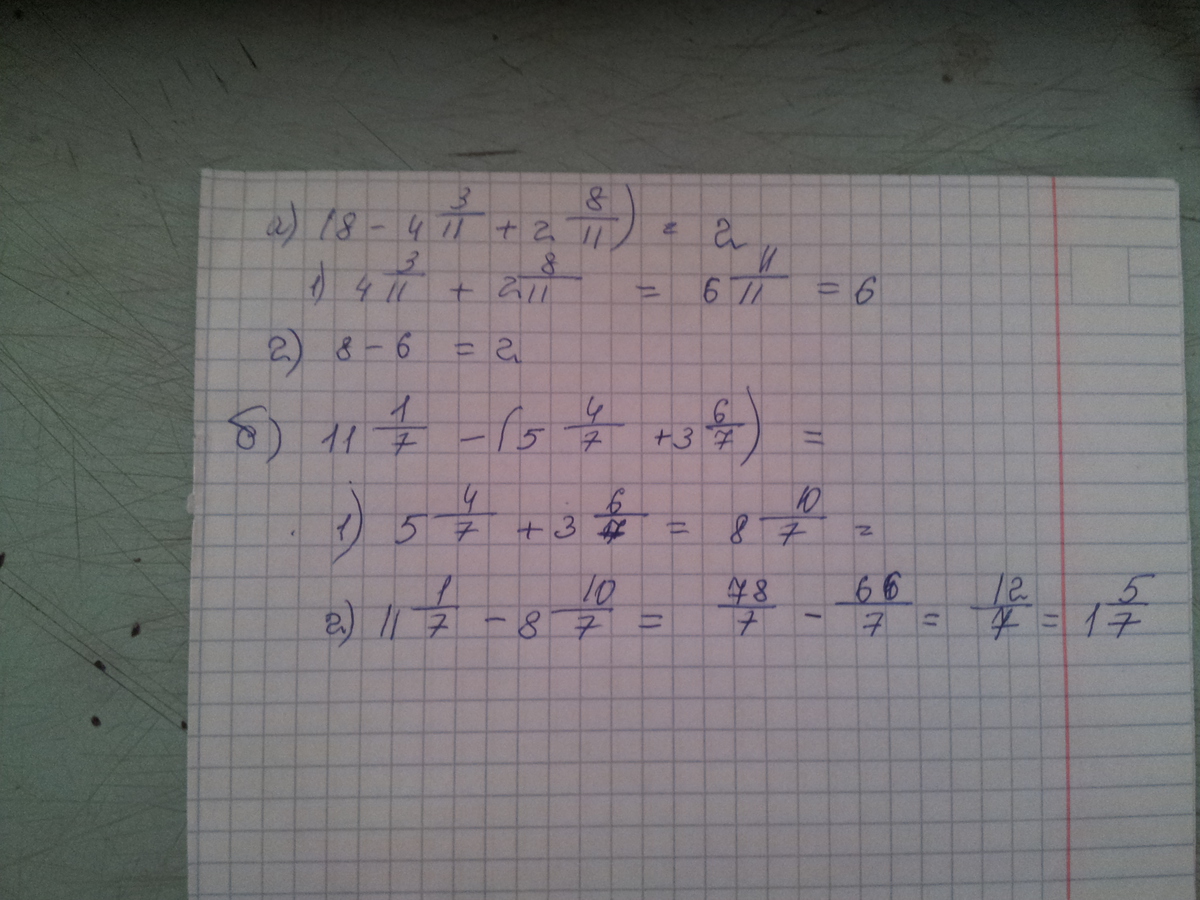 а) (8 - 4 3/11 + 2 8/11) = 2
1) 4 3/11 + 2 8/11 = 6 11/11 = 6
2) 8 - 6 = 2
б) 11 1/7 - (5 4/7 + 3 6/7) =
1) 5 4/7 + 3 6/7 = 8 10/7 =
2) 11 1/7 - 8 10/7 = 78/7 - 66/7 = 12/7 = 1 5/7